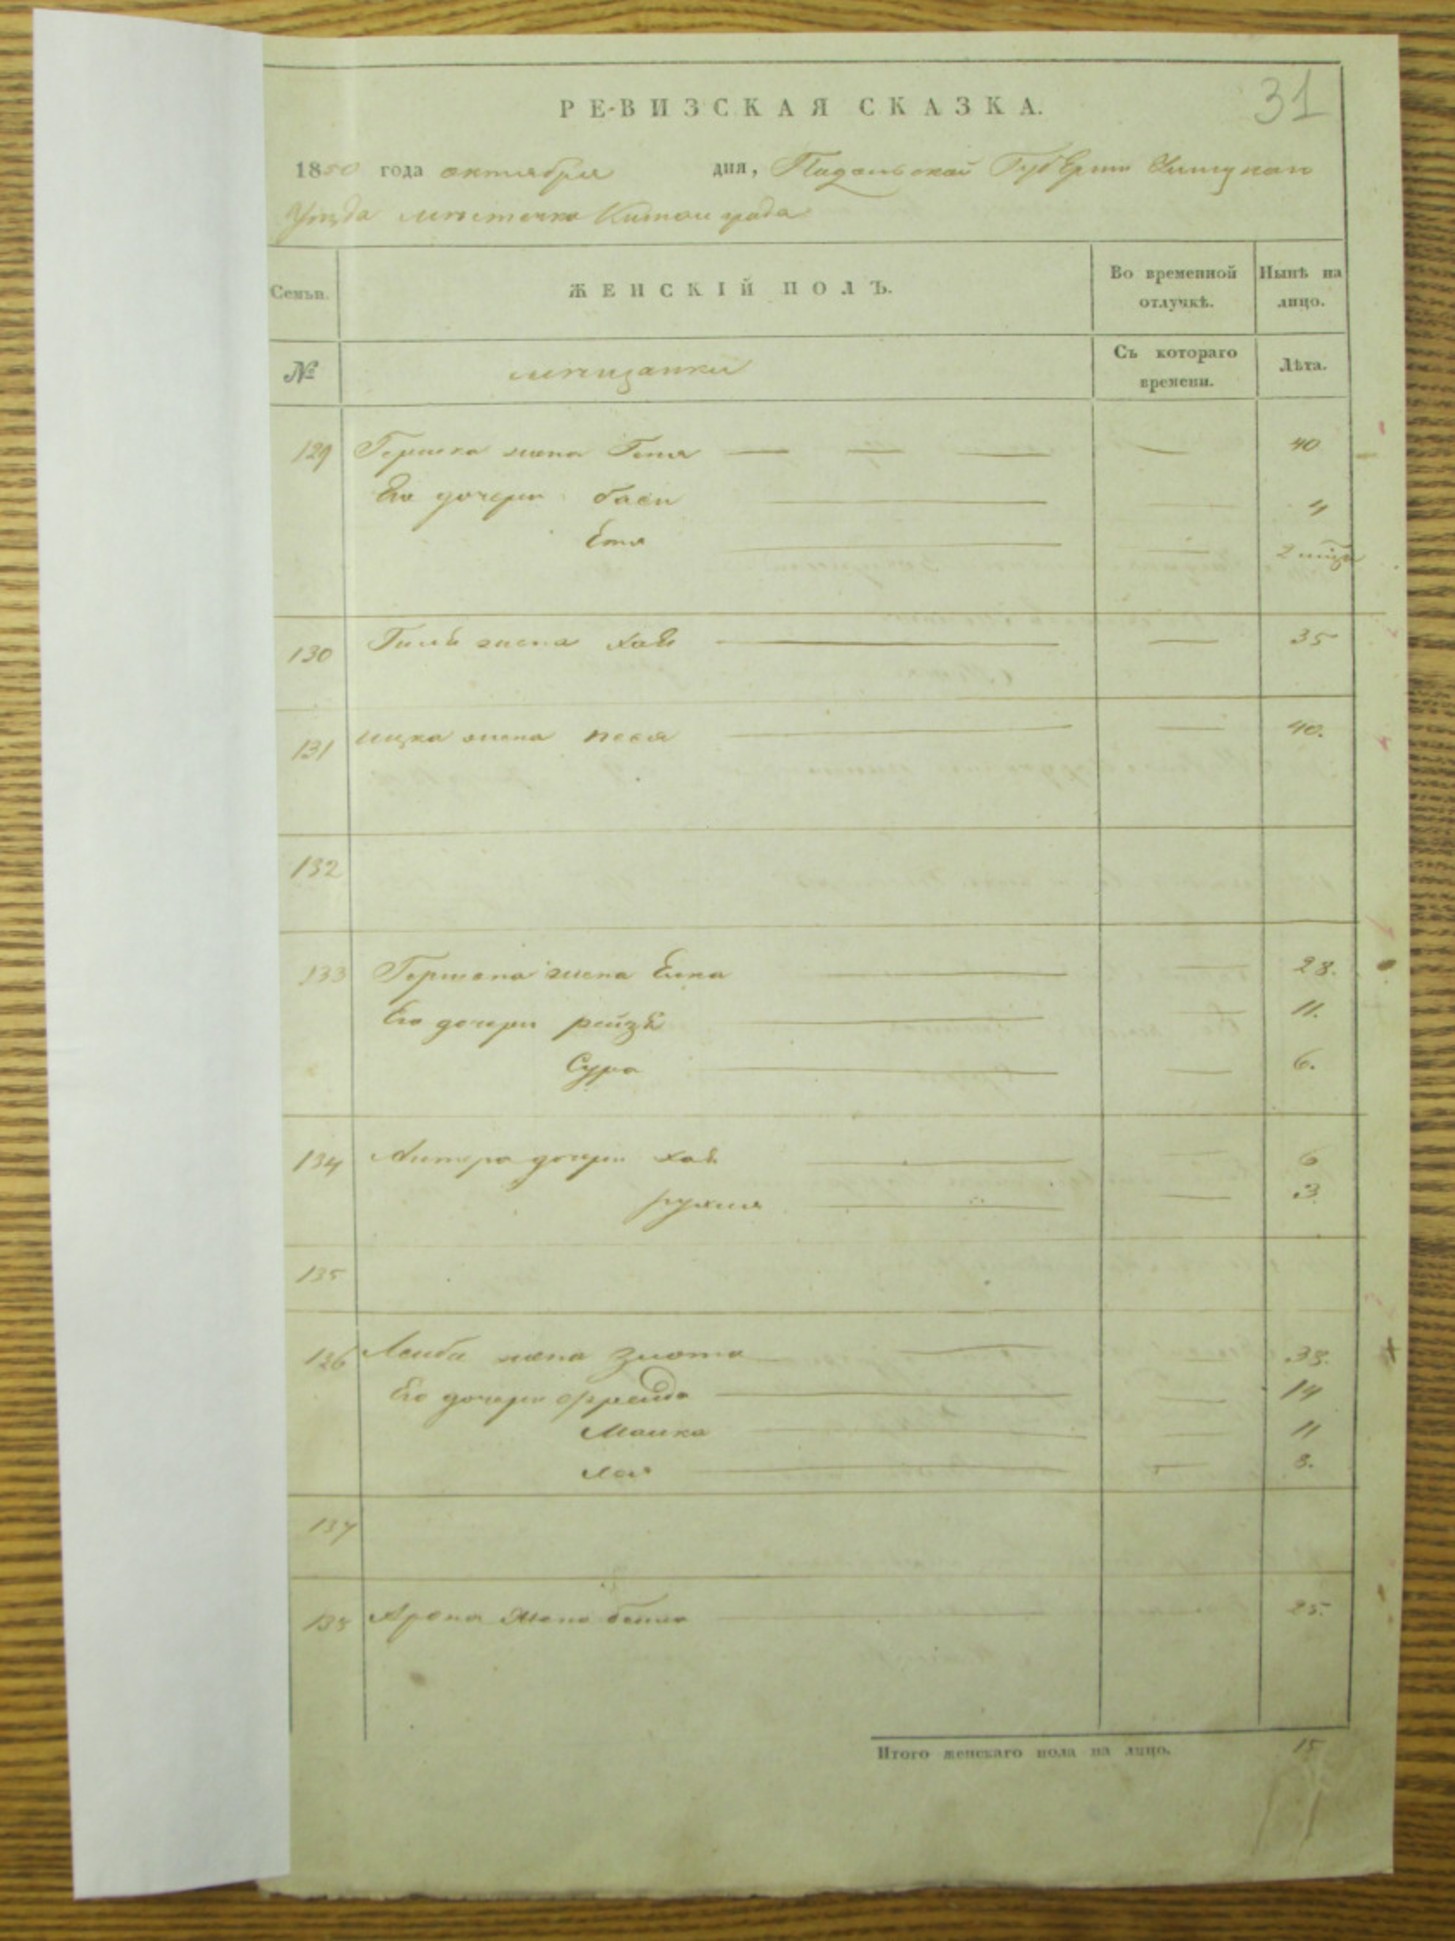 31
РЕВИЗСКАЯ СКАЗКА.
1850 года октября дня, Подольской Губерніи Ушицкаго
Уѣзда мѣстечка Китайграда
Семьи. ЖЕНСКІЙ ПОЛЪ. Во временной отлучкѣ. Нынѣ на лицо.
№ мѣщанки Съ котораго времени. Лѣта.
129 Гершка жена Геня — — — — 40
Его дочери Баси — —
Етя — — 2
130 жена Хая — — 35
131 Ицка жена Песя — — 40.
132
133 Гершона жена Елка — — 28.
Его дочери Рейзя — — 11.
Сура — — 6.
134 Антера дочери Хая — — 6
Рухля — — 3.
135
136 Лейба жена Злота — — 38.
Его дочери Фрейда — — 14
Малка — — 11
Лея — — 8.
137
138 Арона жена Бейла — 25.
Итого женскаго пола на лицо. 15